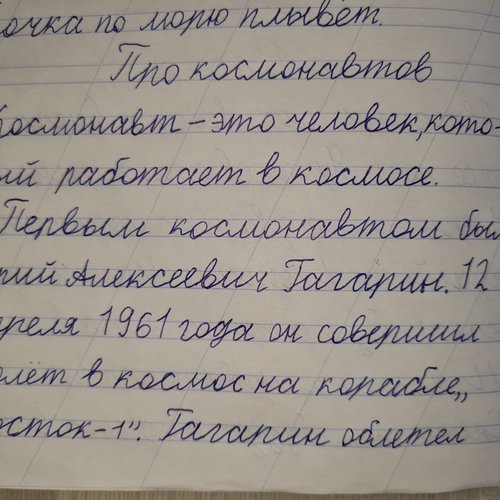 очка по морю плывёт.
Про космонавтов
Космонавт - это человек, кото-
ый работает в космосе.
Первым космонавтом был
рий Алексеевич Гагарин. 12
преля 1961 года он совершил
олёт в космос на корабле „
осток-1". Гагарин облетел